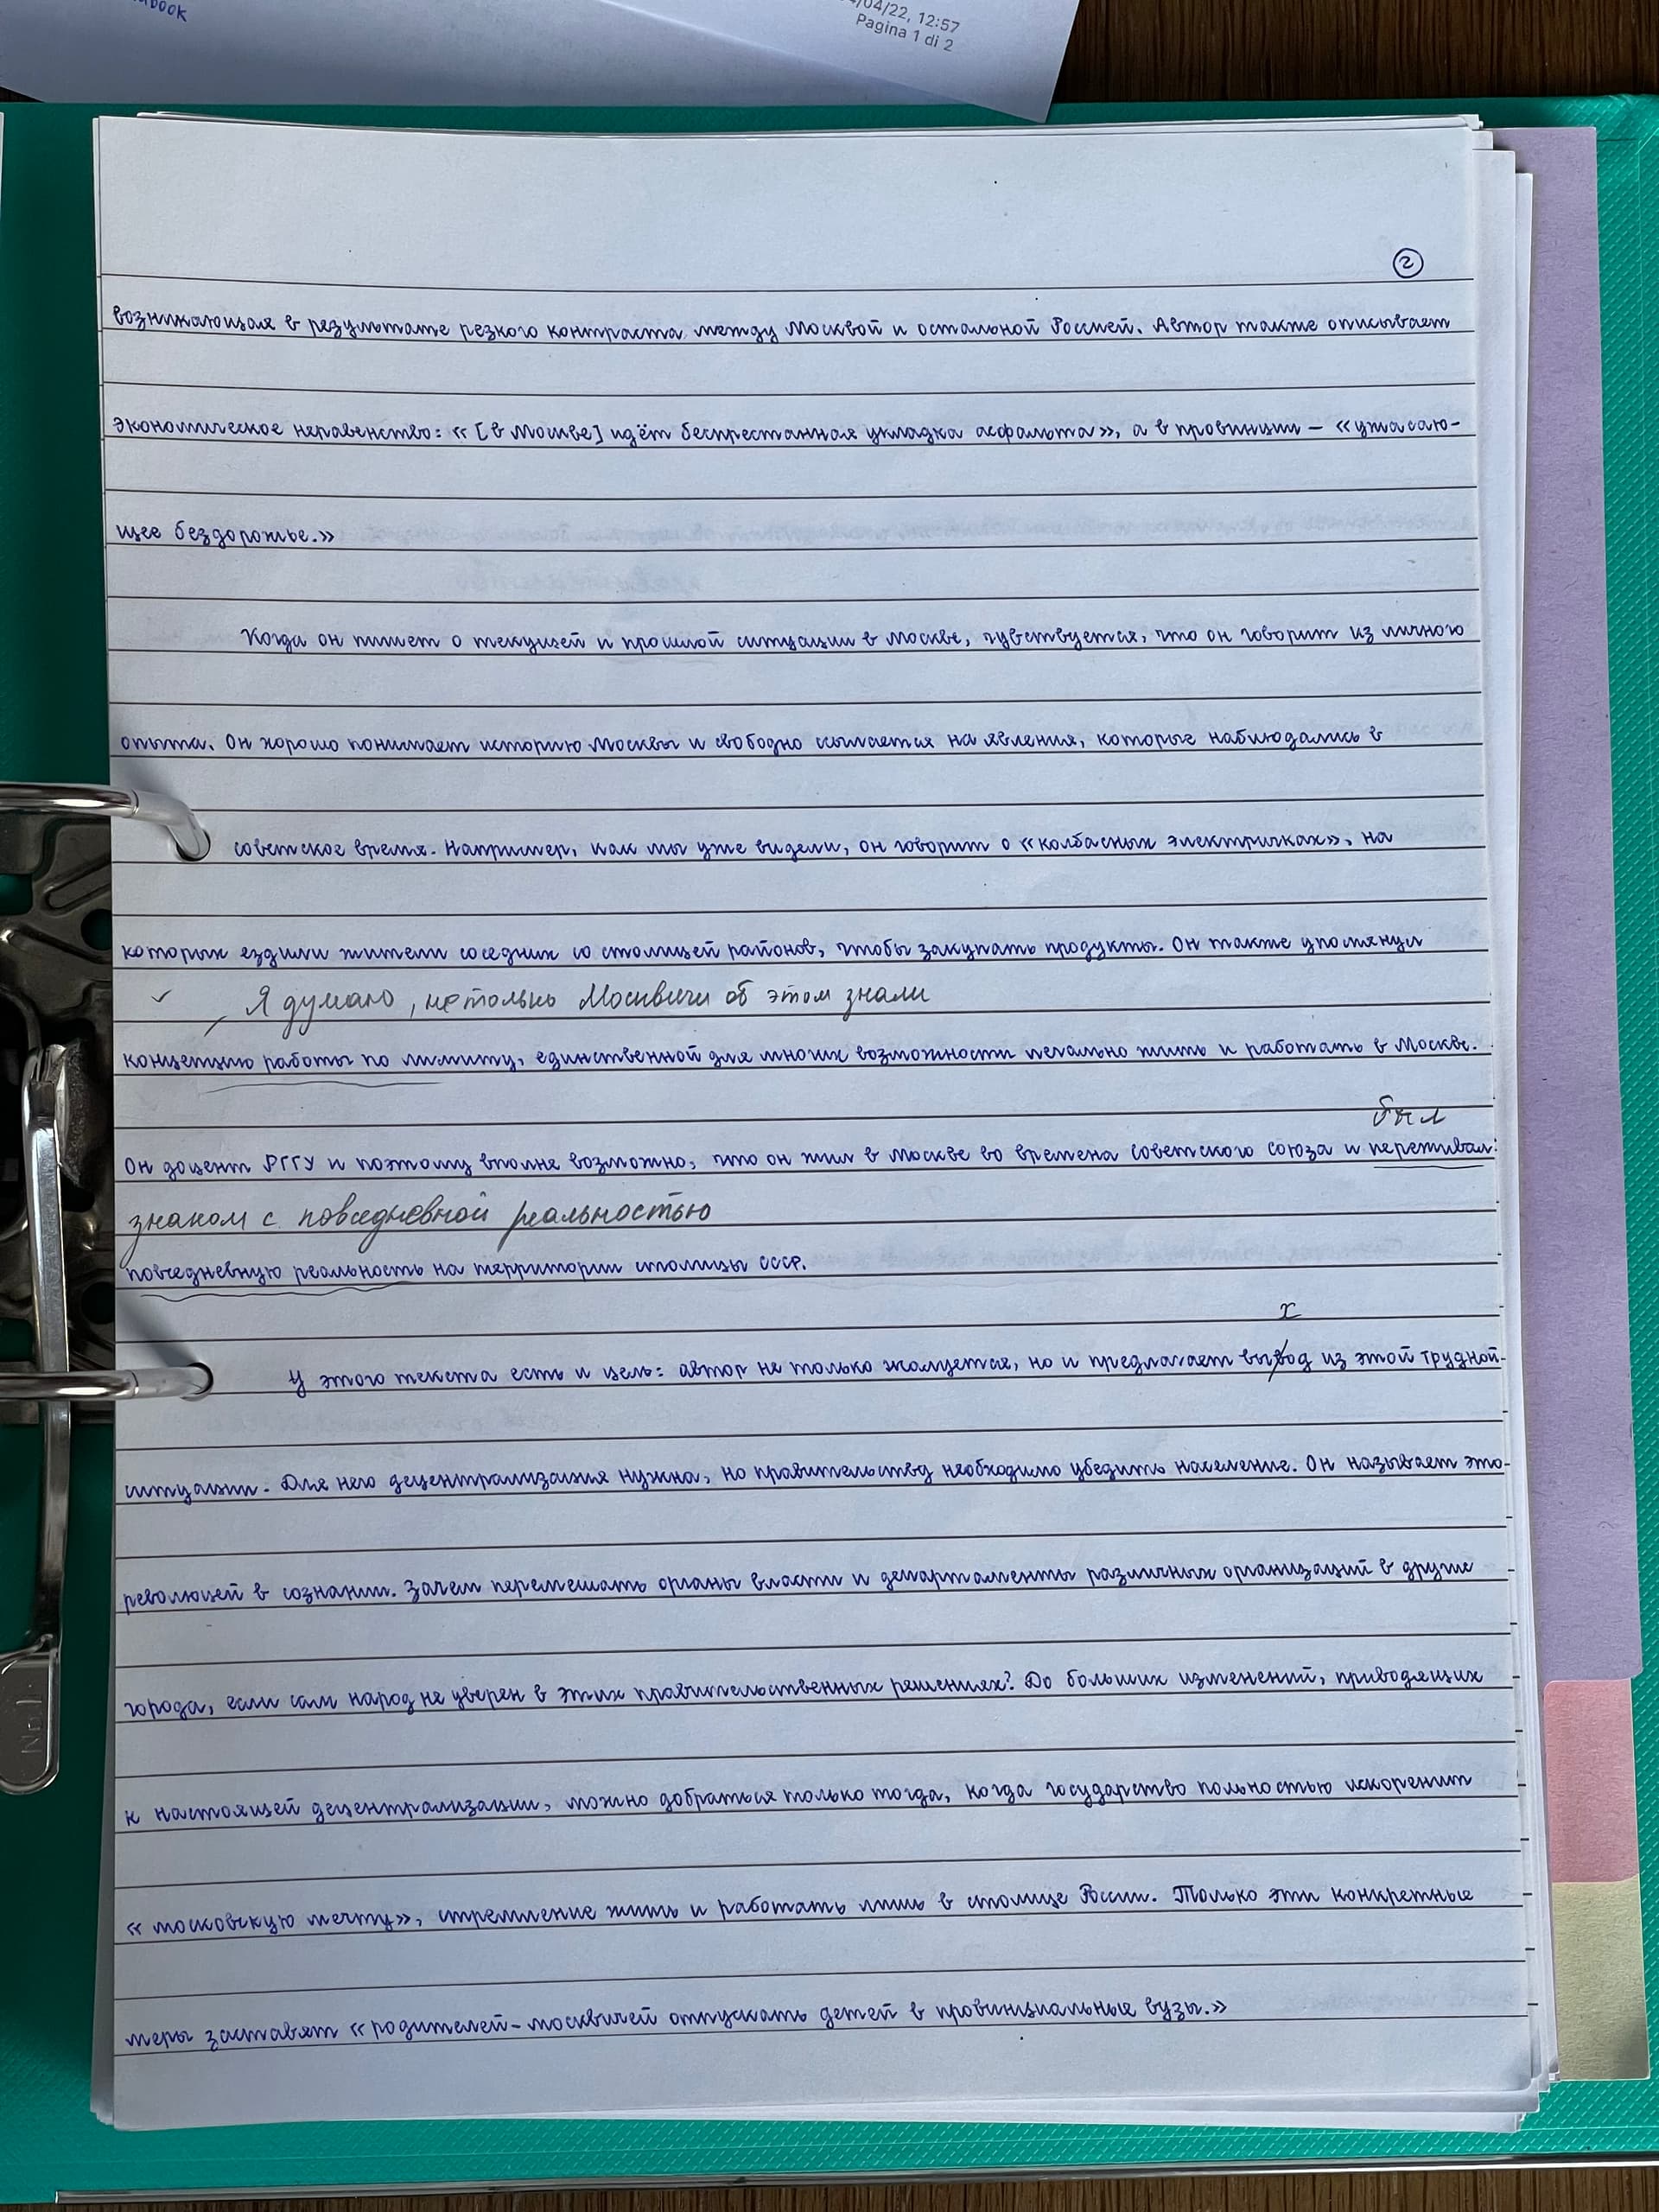 воок
04/04/22, 12:57
Pagina 1 di 2
2
возникающая в результате резкого контраста между Москвой и остальной Россией. Автор также описывает
экономическое неравенство: «[в Москве] идёт беспрестанная укладка асфальта», а в провинции – «ужасаю-
щее бездорожье.»
Когда он пишет о текущей и прошлой ситуации в Москве, чувствуется, что он говорит из личного
опыта. Он хорошо понимает историю Москвы и свободно ссылается на явления, которые наблюдались в
советское время. Например, как мы уже видели, он говорит о «колбасных электричках», на
которых ездили жители соседних со столицей районов, чтобы закупать продукты. Он также упомянул
✓ Я думаю, не только Москвичи об этом знали
концепцию работы по лимиту, единственной для многих возможности легально жить и работать в Москве.
был
Он доцент РГГУ и поэтому вполне возможно, что он жил в Москве во времена советского союза и переживал
знаком с повседневной реальностью
повседневную реальность на территории столицы СССР.
х
У этого текста есть и цель: автор не только жалуется, но и предлагает вывод из этой трудной
ситуации. Для него децентрализация нужна, но правительству необходимо убедить население. Он называет это
револющей в сознании. Зачем перемещать органы власти и департаменты различных организаций в другие
города, если сам народ не уверен в этих правительственных решениях? До больших изменений, приводящих
к настоящей децентрализации, можно добраться только тогда, когда государство польностью искоренит
«московскую мечту», стремление жить и работать лишь в столице России. Только эти конкретные
меры заставят «родителей-москвичей отпускать детей в провинциальные вузы.»
No.1